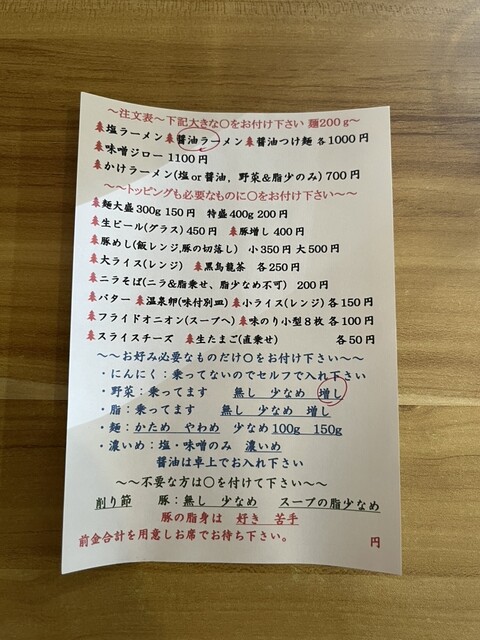 ～注文表～下記大きな〇をお付け下さい 麺200g～
🌲塩ラーメン🌲醤油ラーメン🌲醤油つけ麺 各1000円
🌲味噌ジロー 1100円
🌲かけラーメン(塩or醤油，野菜&脂少のみ) 700円
～～トッピングも必要なものに〇をお付け下さい～～
🌲麺大盛300g 150円 特盛400g 200円
🌲生ビール(グラス) 450円 🌲豚増し 400円
🌲豚めし(飯レンジ,豚の切落し) 小350円 大500円
🌲大ライス(レンジ) 🌲黒烏龍茶 各250円
🌲ニラそば(ニラ&脂乗せ、脂少なめ不可) 200円
🌲バター 🌲温泉卵(味付別皿) 🌲小ライス(レンジ) 各150円
🌲フライドオニオン(スープへ) 🌲味のり小型8枚 各100円
🌲スライスチーズ 🌲生たまご(直乗せ) 各50円
～～お好み必要なものだけ〇をお付け下さい～～
・にんにく：乗ってないのでセルフで入れ下さい
・野菜：乗ってます 無し 少なめ 増し
・脂：乗ってます 無し 少なめ 増し
・麺：かため やわめ 少なめ100g 150g
・濃いめ：塩・味噌のみ 濃いめ
醤油は卓上でお入れ下さい
～～不要な方は〇を付けて下さい～～
削り節 豚：無し 少なめ スープの脂少なめ
豚の脂身は 好き 苦手
前金合計を用意しお席でお待ち下さい。 円